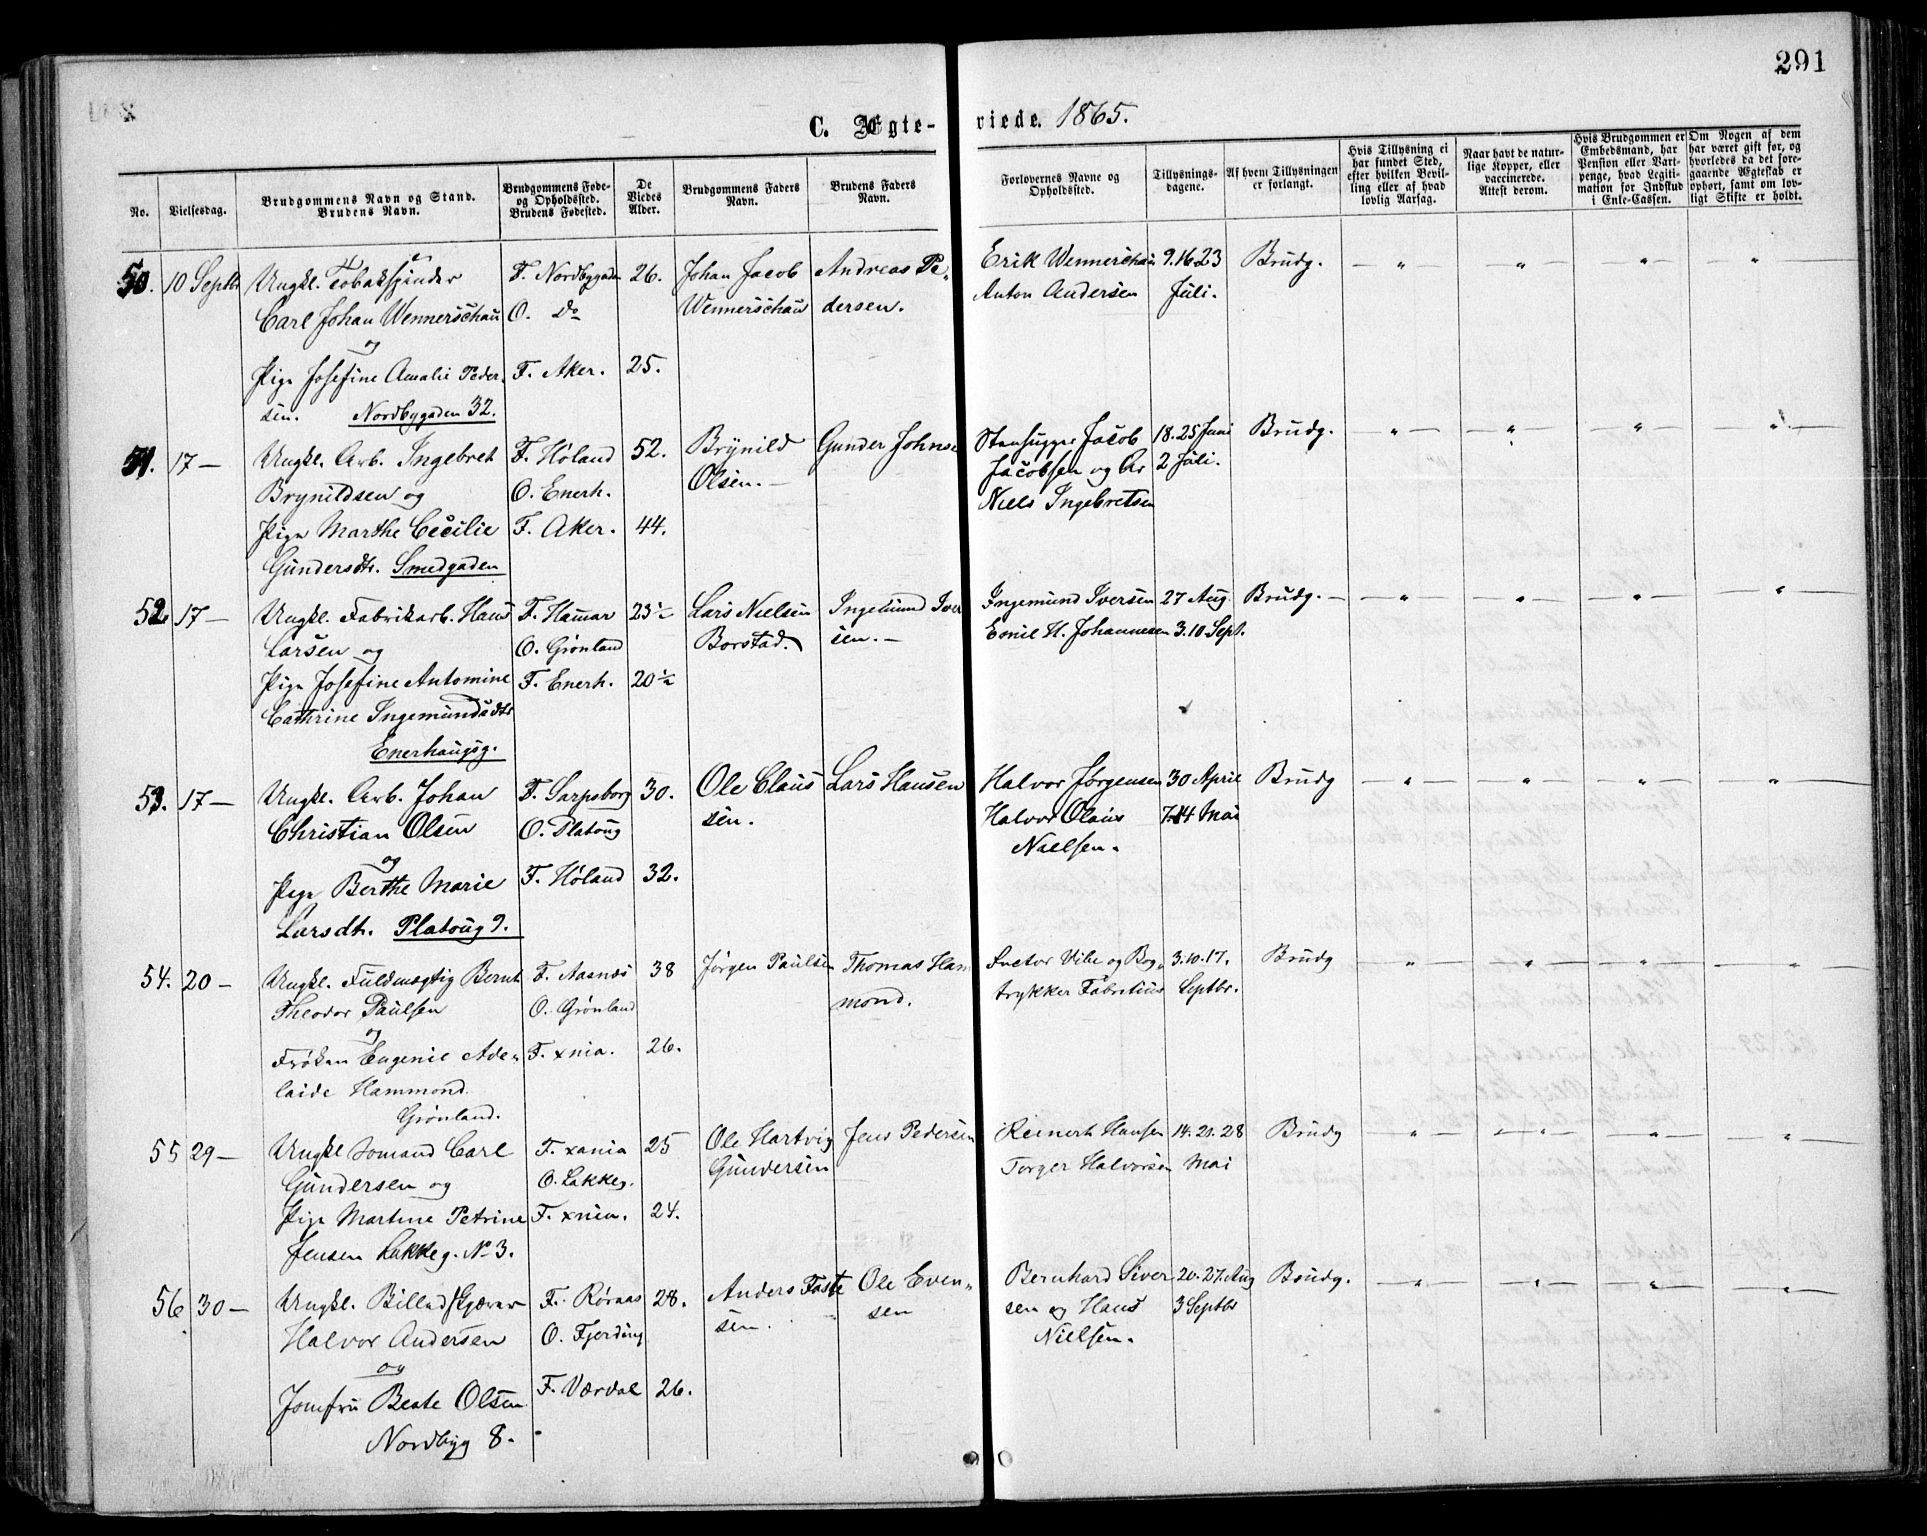 291
C. Ægte- viede. 1865.
No.
Vielsesdag.
Brudgommens Navn og Stand.
Brudens Navn.
Brudgommens Føde-
og Opholdssted.
Brudens Fødested.
De
Viedes
Alder.
Brudgommens Faders
Navn.
Brudens Faders
Navn.
Forlovernes Navne og
Opholdssted.
Tillysnings-
dagene.
Af hvem Tillysningen
er forlangt.
Hvis Tillysning ei
har fundet Sted,
efter hvilken Bevil-
ling eller af hvad
lovlig Aarsag.
Naar havt de natur-
lige Kopper, eller
vaccinerede.
Attest derom.
Hvis Brudgommen er
Embedsmand, har
Pension eller Vart-
penge, hvad Legiti-
mation for Indskud
i Enke-Cassen.
Om Nogen af dem
har været gift før, og
hvorledes da det fore-
gaaende Ægteskab er
ophørt, samt om lov-
ligt Skifte er holdt.
50. 10 Septbr Ungkl. Tobakspinder F. Nordbygaden 26. Johan Jacob Andreas Pe- Erik Wennerschau 9.16 23 Brudg. — " — " — " — "
Carl Johan Wennerschau O. Do Wennerschau dersen. Anton Andersen Juli.
og
Pige Josefine Amalie Peder- F. Aker. 25.
sen. Nordbygaden 32.
51. 17 — Ungkl. Arb. Ingebret F. Høland 52. Brynild Gunder Johnse Stenhugger Jacob 18. 25 Juni Brudg. — " — " — " — "
Brynildsen og O. Enerh. Olsen. — Jacobsen og Ar 2 Juli.
Niels Ingebretsen
Pige Marthe Cecilie F. Aker. 44.
Gundersdtr. Smedgaden
52. 17 — Ungkl. Fabrikarb. Hans F. Hamar 23½ Lars Nielsen Ingemund Iver Ingemund Iversen 27 Aug. Brudg. — " — " — " — "
Larsen og O. Grønland Borstad. sen. — Emil H. Johannesen 3.10 Sept.
Pige Josefine Antomine F. Enerh. 20½
Cathrine Ingemundsdtr
Enerhaugsg.
53. 17 — Ungkl. Arb. Johan F. Sarpsborg 30. Ole Claus Lars Hansen Halvor Jørgensen 30 April Brudg — " — " — " — "
Christian Olsen O. Platoug sen. Halvor Olaus 7.14 Mai
og Nielsen.
Pige Berthe Marie F. Høland 32.
Larsdtr. Platoug 9.
54. 20 — Ungkl. Fuldmægtig Bernt F. Aasnæs 38 Jørgen Paulsen Thomas Ham Factor Vibe og Bog- 3.10.17. Brudg — " — " — " — "
Theodor Paulsen O. Grønland mond. trykker Fabritius Septbr.
og
Frøken Eugenie Ade- F. xnia. 26.
laide Hammond.
Grønland.
55 29 — Ungkl Sømand Carl F. xania 25 Ole Hartvig Jens Pedersen Reinert Hansen 14. 21. 28 Brudg — " — " — " — "
Gundersen og O. Lakkeg. Gundersen Torger Halvorsen Mai
Pige Martine Petrine F. xnia. 24.
Jensen Lakkeg. No 3.
56 30 — Ungkl. Billedskjærer F. Røraas 28. Anders Faste Ole Even- Bernhard Siver 20. 27. Aug Brudg. — " — " — " — "
Halvor Andersen O. Fjerding sen. sen sen og Hans 3 Septbr
og Nielsen.
Jomfru Beate Olsen F. Værdal 26.
Nordbyg 8.